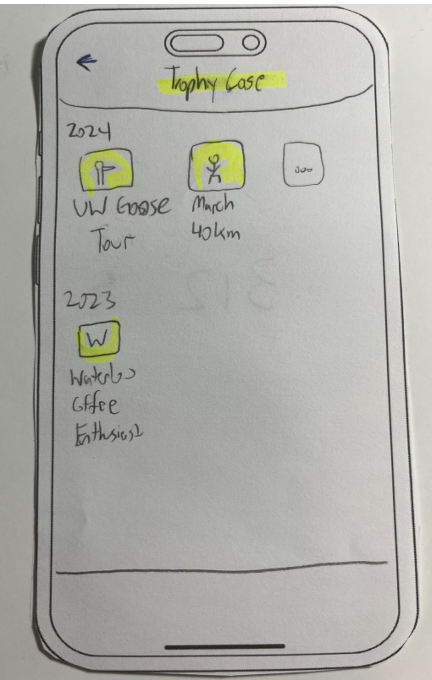 Trophy Case
2024
...
UW Goose March
Tour 40km
2023
W
Waterloo
Coffee
Enthusiast